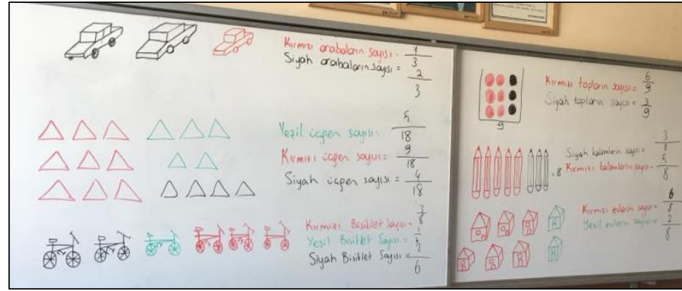 Kırmızı arabaların sayısı = 1/3
Siyah arabaların sayısı = 2/3
Yeşil üçgen sayısı = 5/18
Kırmızı üçgen sayısı = 9/18
Siyah üçgen sayısı = 4/18
Kırmızı Bisiklet Sayısı =
Yeşil Bisiklet Sayısı =
Siyah Bisiklet Sayısı =
6
9
Kırmızı topların sayısı = 6/9
Siyah topların sayısı = 3/9
8
Siyah kalemlerin sayısı = 3/8
Kırmızı kalemlerin sayısı = 5/8
Kırmızı evlerin sayısı = 6/8
Yeşil evlerin sayısı = 2/8